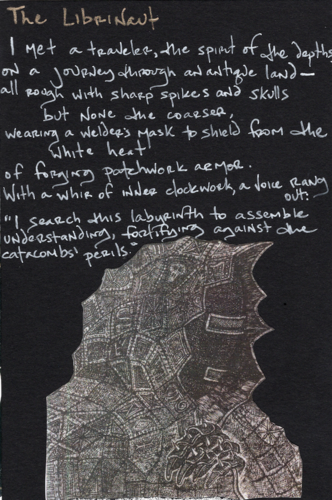 The Librinaut
I met a traveler, the spirit of the depths
on a journey through an antique land—
all rough with sharp spikes and skulls
but none the coarser,
wearing a welder's mask to shield from the
white heat
of forging patchwork armor.
With a whir of inner clockwork, a voice rang
out:
"I search this labyrinth to assemble
understanding, fortifying against the
catacombs' perils."